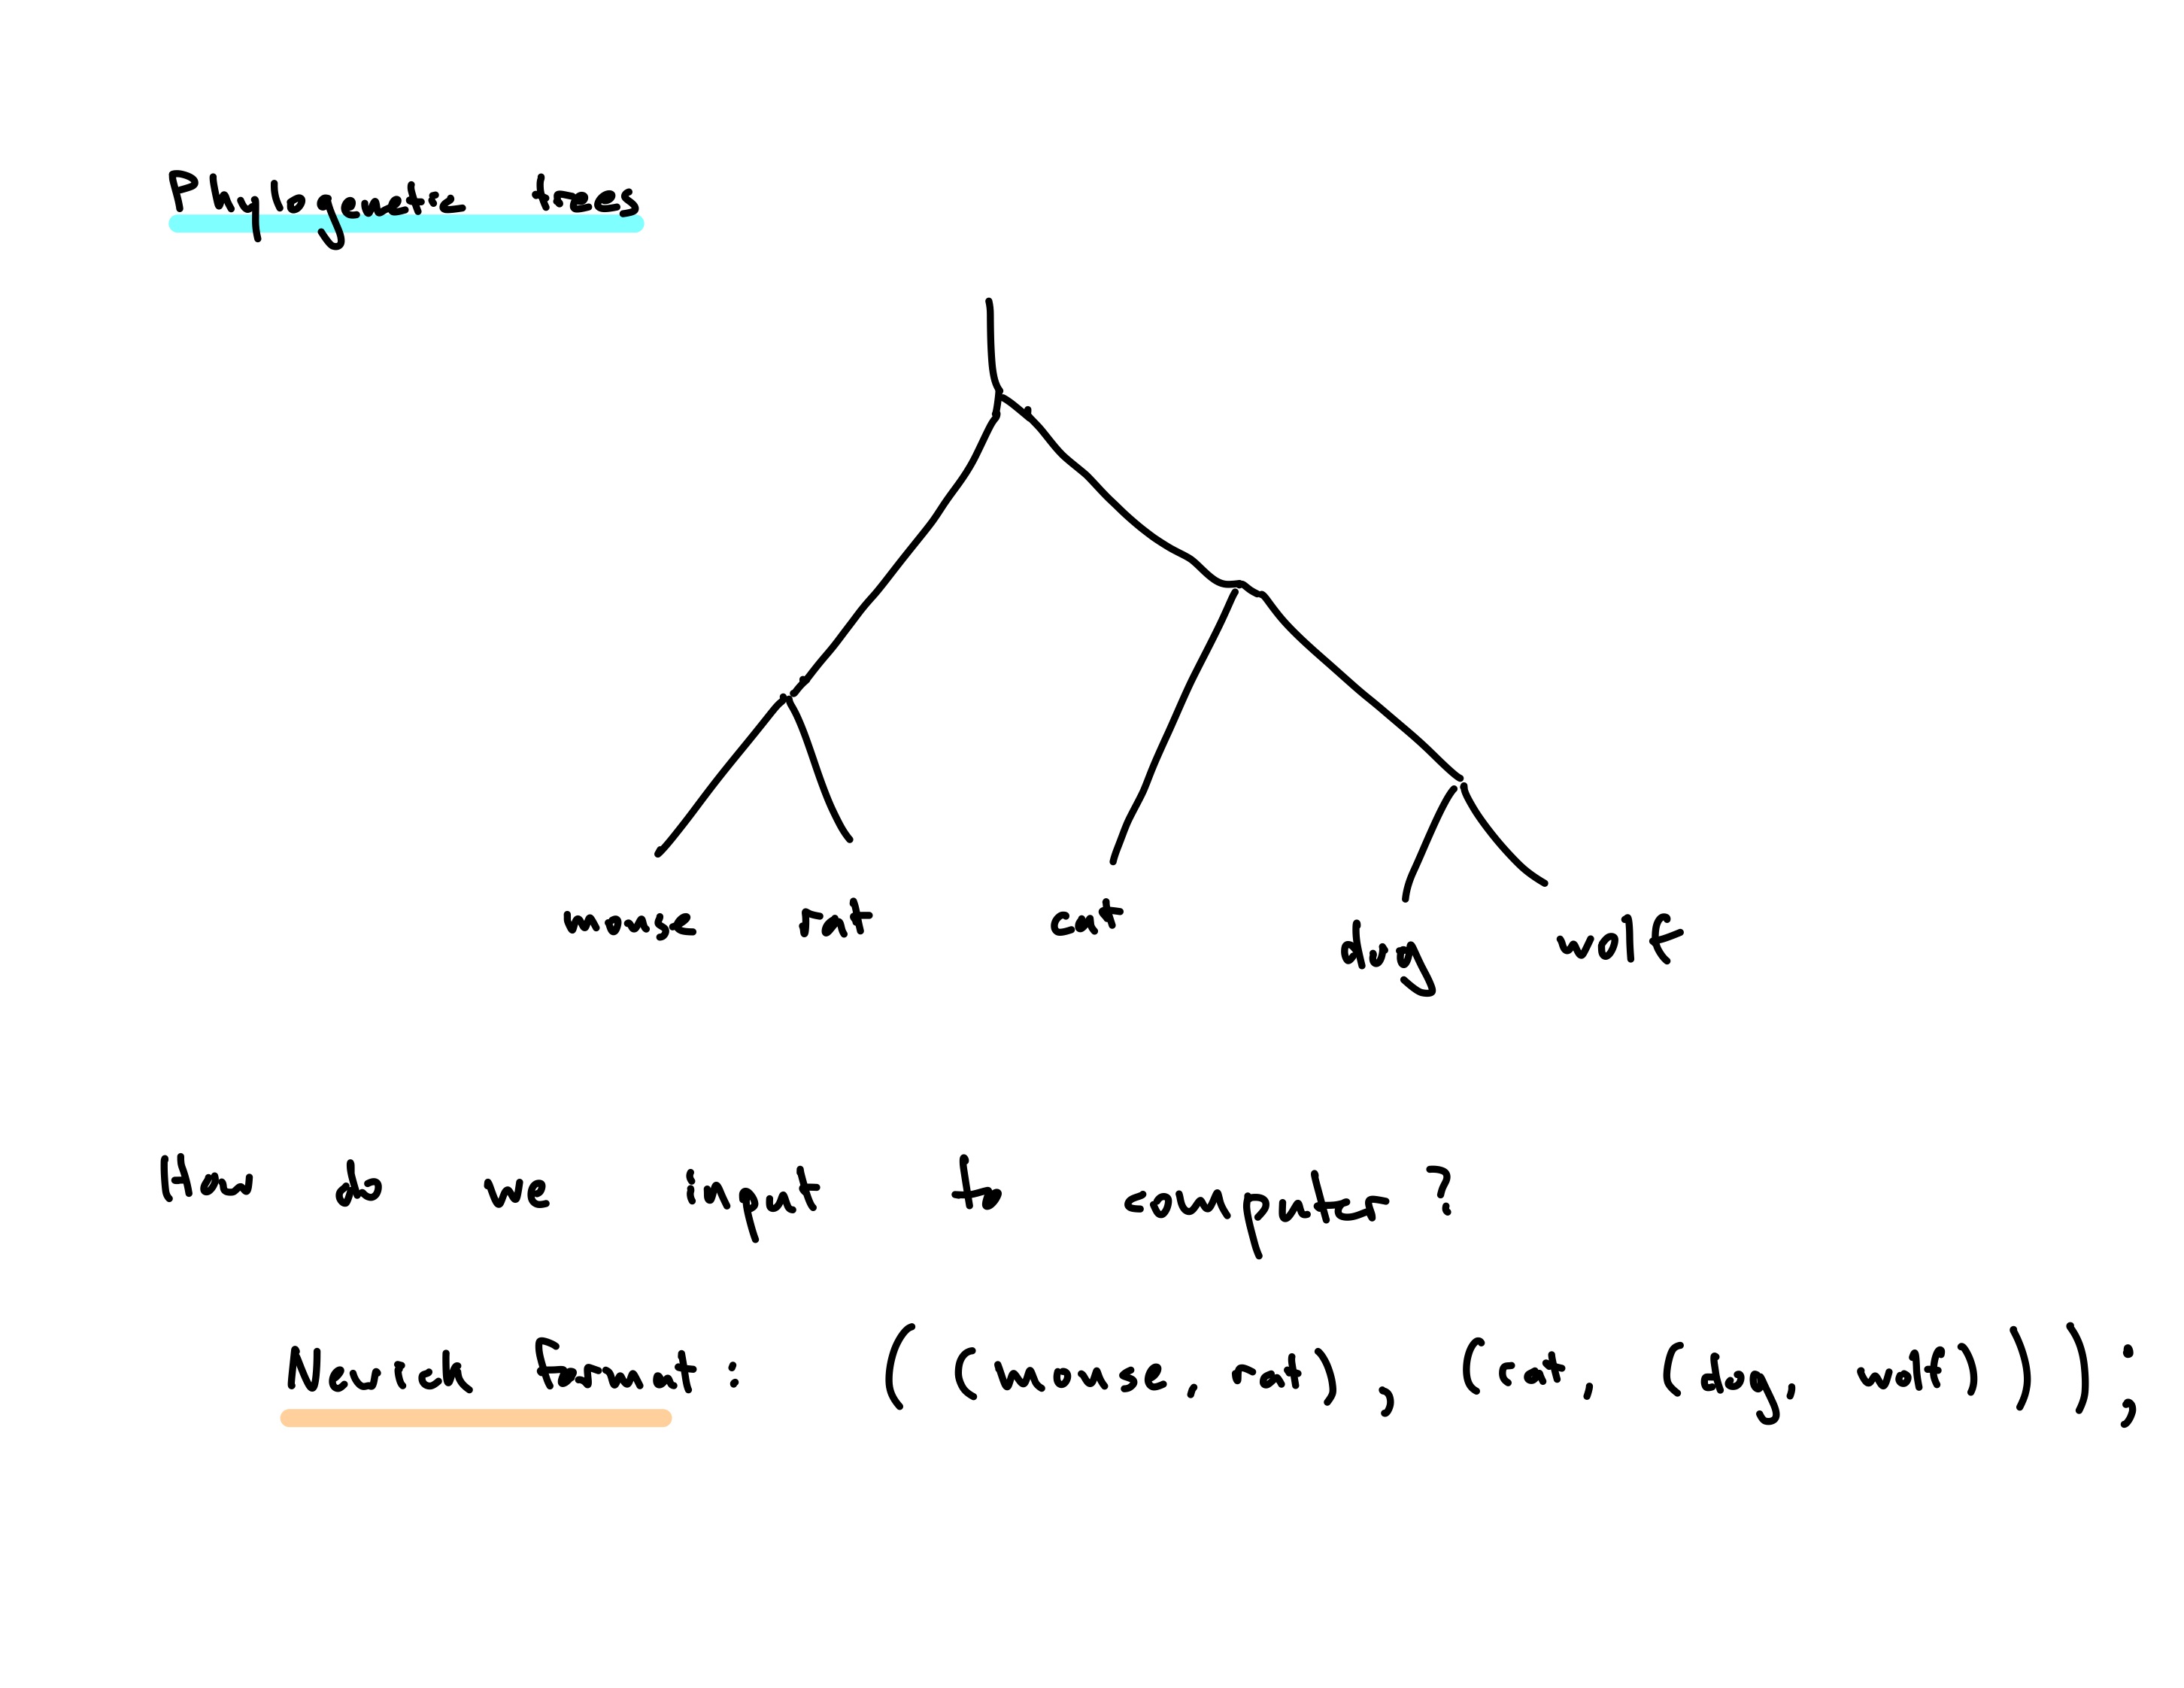 Phylogenetic trees
mouse rat cat dog wolf
How do we input to computer?
Newick Format: ((mouse, rat), (cat, (dog, wolf)));